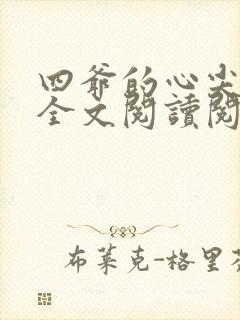 四爺的心尖
全文閱讀閱
布萊克-格里芬